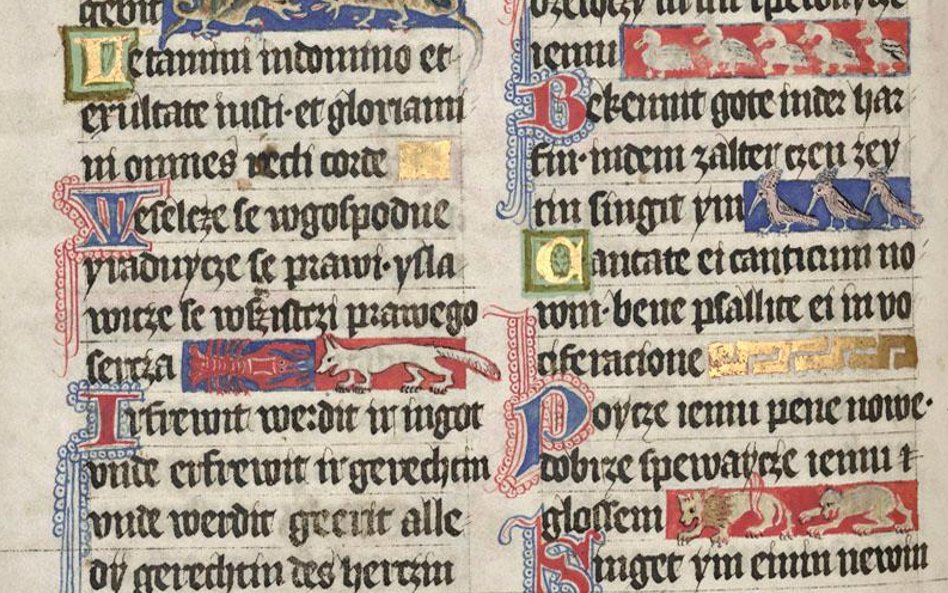 gebit
Letamini indomino et
exultate iusti·et gloriami
ni omnes recti corde
Weselcze se wgospodne
yraduycze se prawi·ysla
wicze se wszistczi prawego
sercza
Irfrewit werdit ir ingot
vnde erfrewit ir gerechtin
vnde werdit geerit alle
dy gerechtin des hertzin
iemu
Bekennit gote inder har
fin·indem zalter czen zey
tin singit ym
Cantate ei canticum no
vom·bene psallite ei in vo
ciferacione
Poycze iemu pene nowe·
dobrze spewaycze iemu z
glossem
Singet ym einin newin